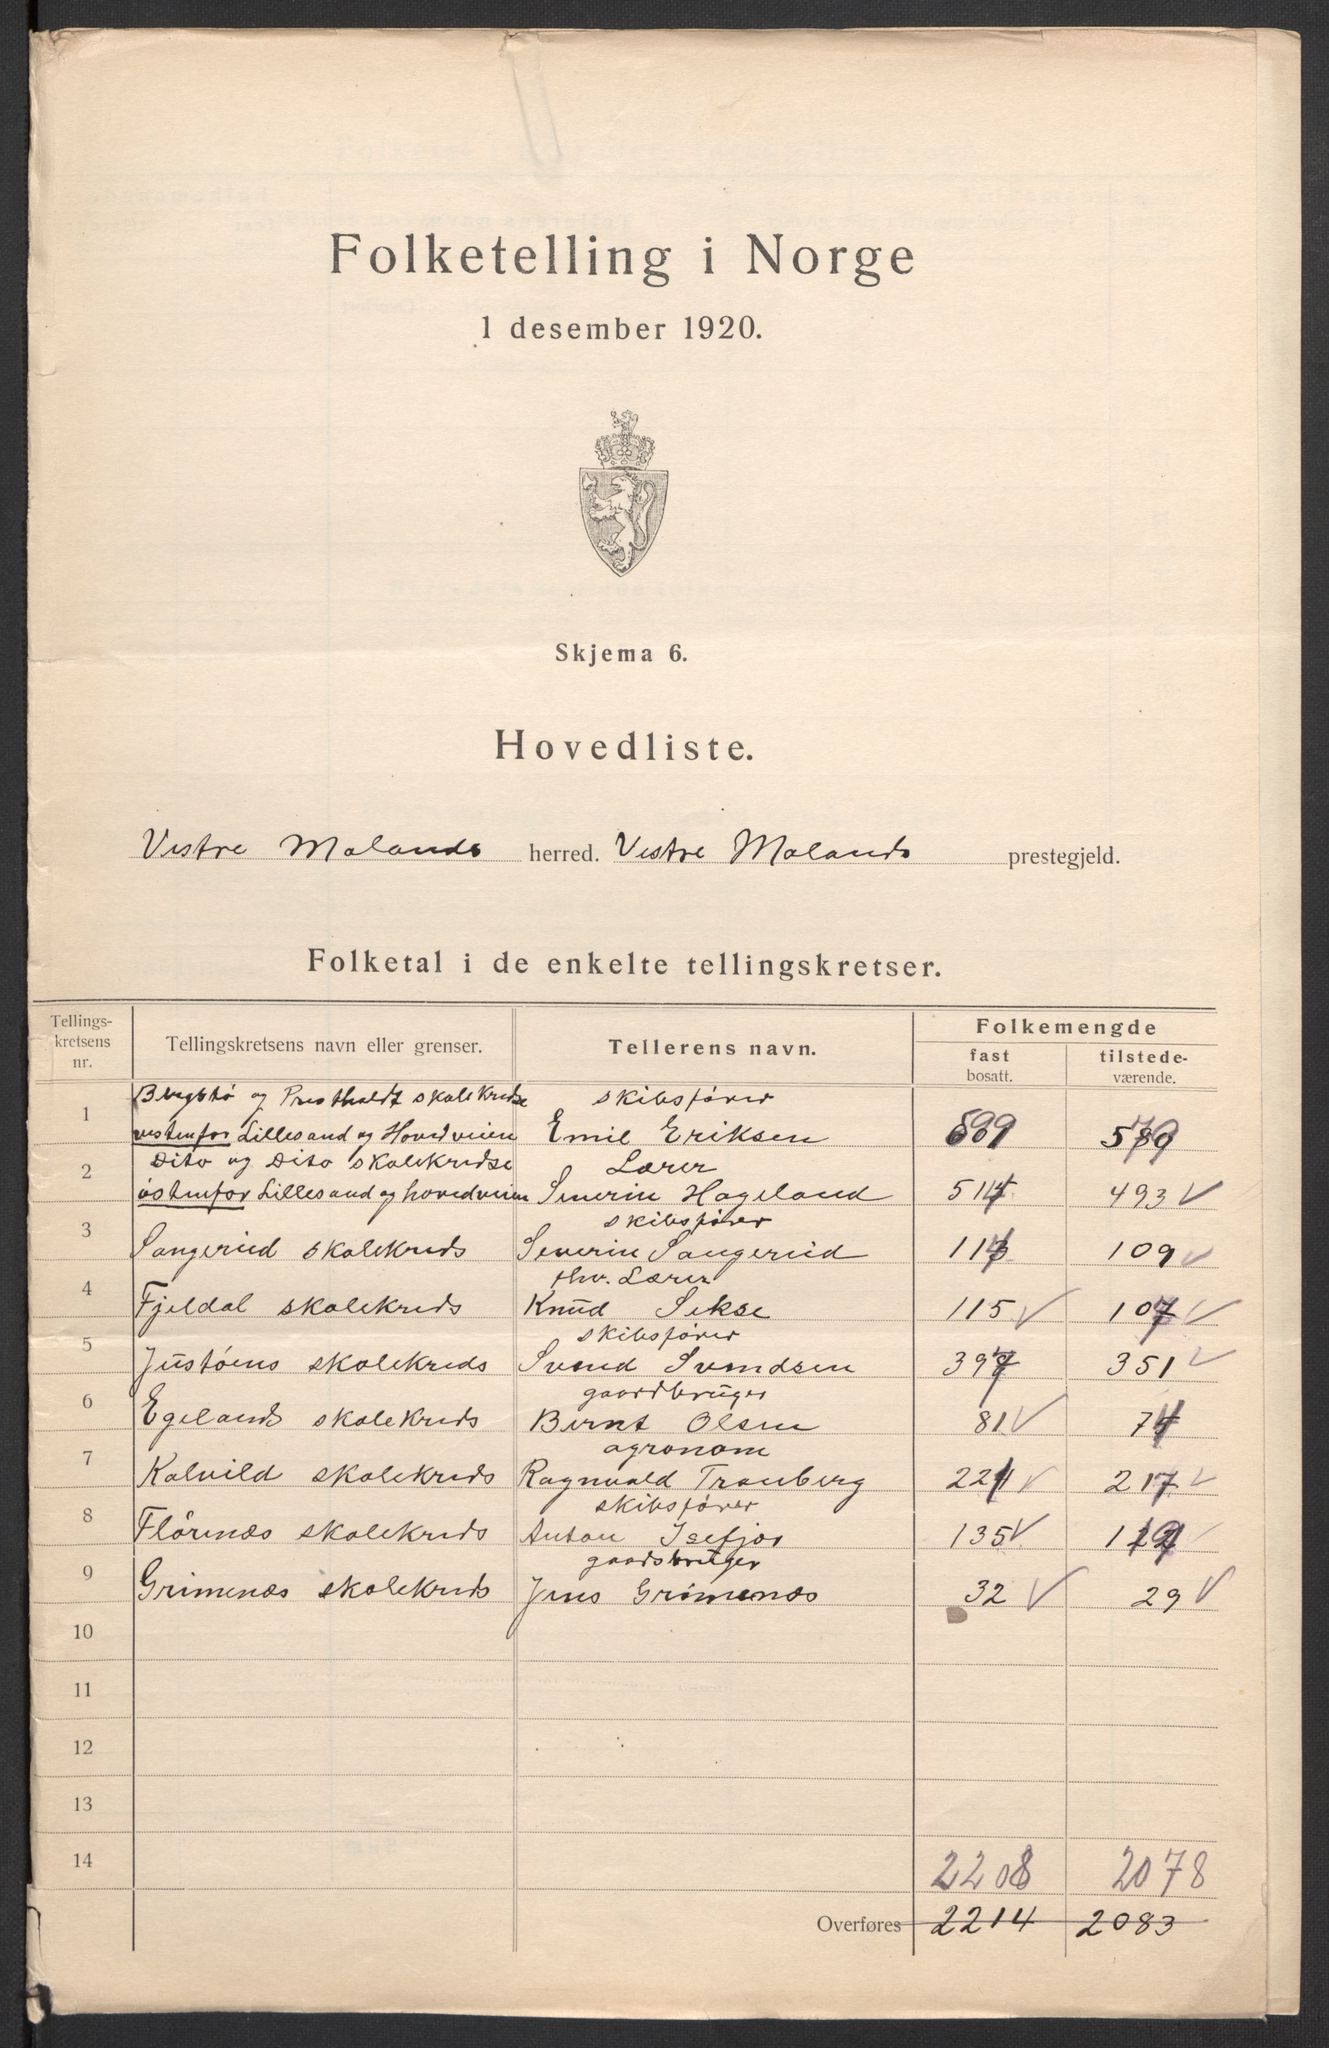 Folketelling i Norge
1 desember 1920.
Skjema 6.
Hovedliste.
Vestre Molands herred. Vestre Molands prestegjeld.
Folketal i de enkelte tellingskretser.
Tellings-
kretsens
nr.
Tellingskretsens navn eller grenser.
Tellerens navn.
Folkemengde
fast
bosatt.
tilstede-
værende.
Bergstø og Prestholdt skolekredse skibsfører
1 vestenfor Lillesand og Hovedveien Emil Eriksen
Dito og Dito skolekredse Lærer
2 østenfor Lillesand og hovedveien Severin Hageland 493
skibsfører
3 Sangereid skolekreds Severin Sangereid 109
thv. Lærer
4 Fjeldal skolekreds Knud Sekse 115
skibsfører
5 Justøens skolekreds Svend Svendsen 351
gaardbruger
6 Egelands skolekreds Bernt Olsen 81
agronom
7 Kalvild skolekreds Ragnvald Tranberg
skibsfører
8 Flørenæs skolekreds Anton Isefjær 135
gaardsbruger
9 Grimenæs skolekreds Jens Grimenæs 32 29
10
11
12
13
14 2208 2078
Overføres 2214 2083